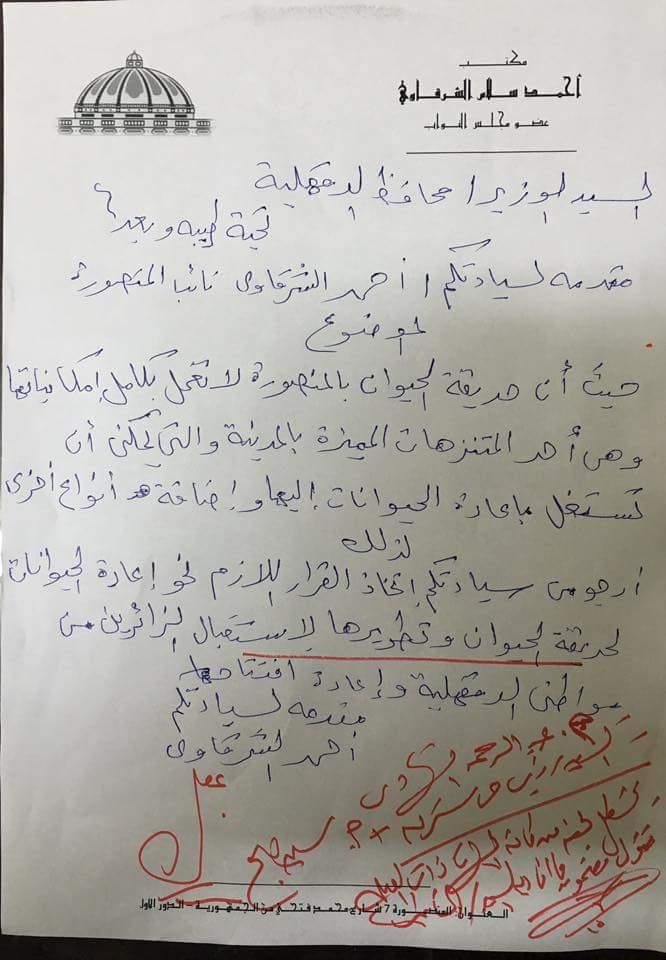 مكتب
أحمد سلام الشرقاوي
عضو مجلس النواب
السيد الوزير / محافظ الدقهلية
تحية طيبه وبعد
مقدمه لسيادتكم / أحمد الشرقاوى نائب المنصورة
الموضوع
حيث أن حديقة الحيوان بالمنصورة لا تعمل بكامل إمكانياتها
وهى أحد المتنزهات المميزة بالمدينة والتي يمكن أن
تستغل بإعادة الحيوانات إليها وإضافة أنواع أخرى
لذلك
أرجو من سيادتكم إتخاذ القرار اللازم نحو إعادة الحيوانات
لحديقة الحيوان وتطويرها لاستقبال الزائرين من
مواطنى الدقهلية وإعادة افتتاحها
مقدمه لسيادتكم
أحمد الشرقاوى
عبد الرحمن
تشكل لجنه من كافة
العنوان: المنصورة 7 شارع محمد فتحي من الجمهورية - الدور الأول